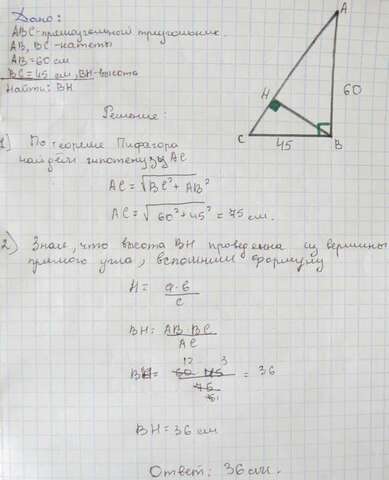 Дано:
ABC-прямоугольный треугольник.
AB, BC-катеты
AB=60 см
BC=45 см, BH-высота
Найти: BH
A
H
60
C
45
B
Решение:
1) По теореме Пифагора
найдем гипотенузу AC
AC = √BC² + AB²
AC = √60² + 45² = 75 см.
2) Зная, что высота BH проведенна из вершины
прямого угла, вспомним формулу
H = a·b
c
BH = AB·BC
AC
12 3
BH = 60·45 = 36
75
BH = 36 см
Ответ: 36 см.